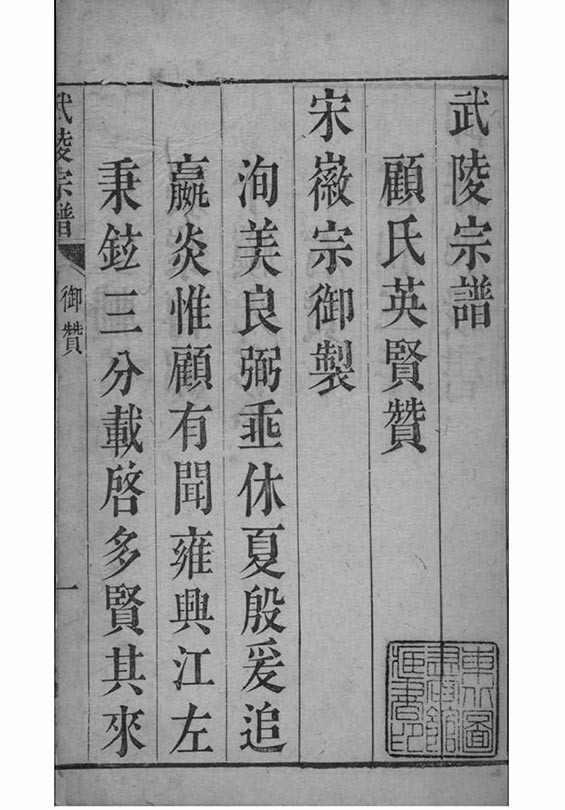 武陵宗譜
顧氏英賢贊
宋徽宗御製
洵美良弼垂休夏殷爰追
嬴炎惟顧有聞雍興江左
秉鉉三分載啓多賢其來
武陵宗譜
御贊
一
東北圖
書館
藏書印